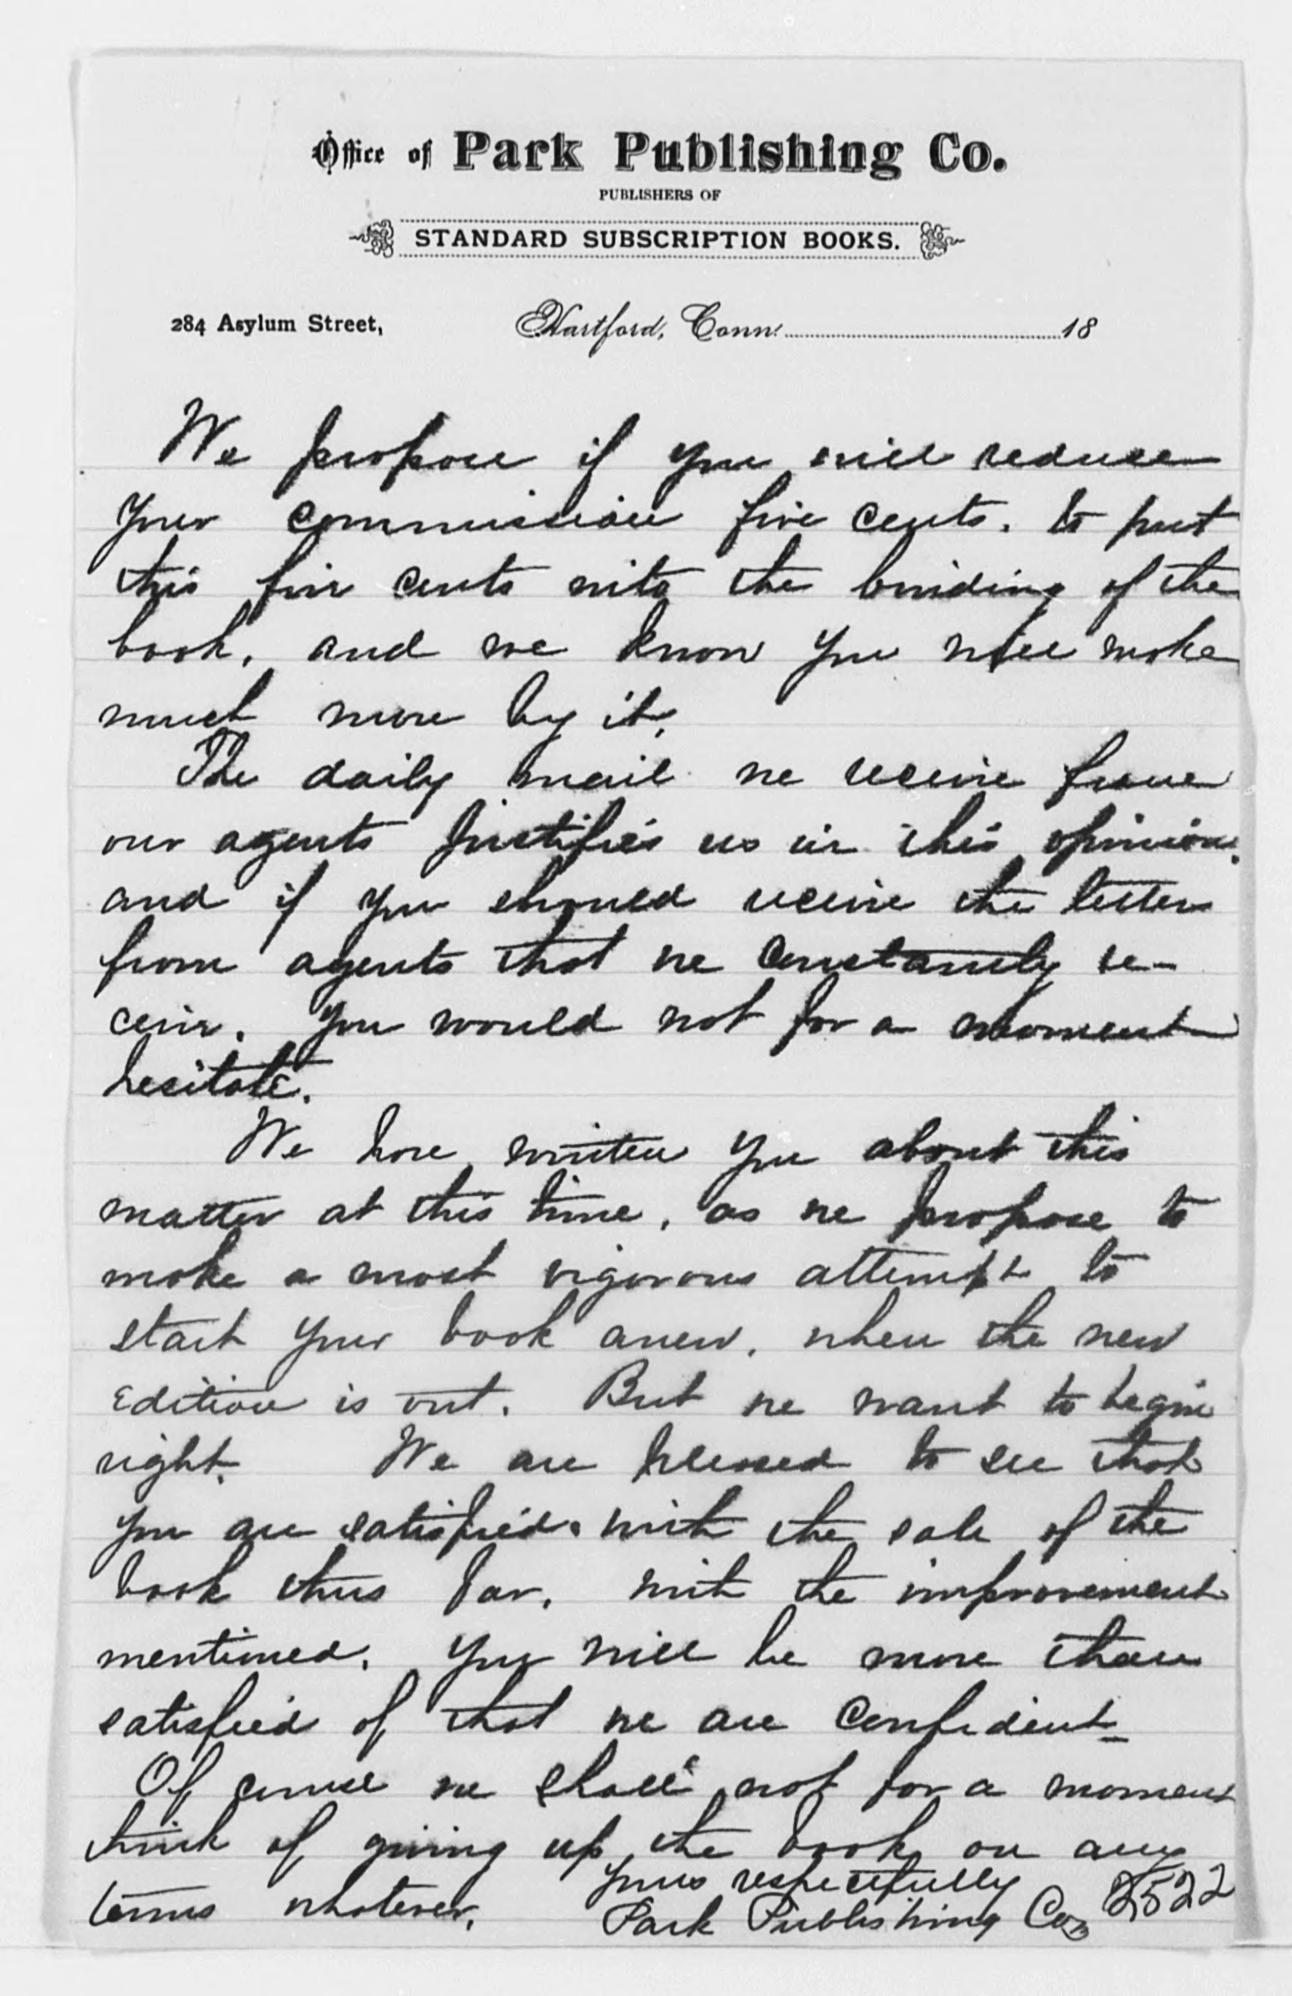 Office of Park Publishing Co.
PUBLISHERS OF
STANDARD SUBSCRIPTION BOOKS.
284 Asylum Street, Hartford, Conn. 18
We propose if you will reduce
your commission five cents. to put
this five cents into the binding of the
book, and we know you will make
much more by it.
The daily mail we receive from
our agents justifies us in this opinion.
and if you should receive the letters
from agents that we constantly re-
ceive. you would not for a moment
hesitate.
We have written you about this
matter at this time, as we propose to
make a most vigorous attempt to
start your book anew, when the new
Edition is out. But we want to begin
right. We are pleased to see that
you are satisfied with the sale of the
book thus far, with the improvement
mentioned, you will be more than
satisfied of that we are confident_
Of course we shall not for a moment
think of giving up the book on any
terms whatever.
Yours respectfully
Park Publishing Co
2522